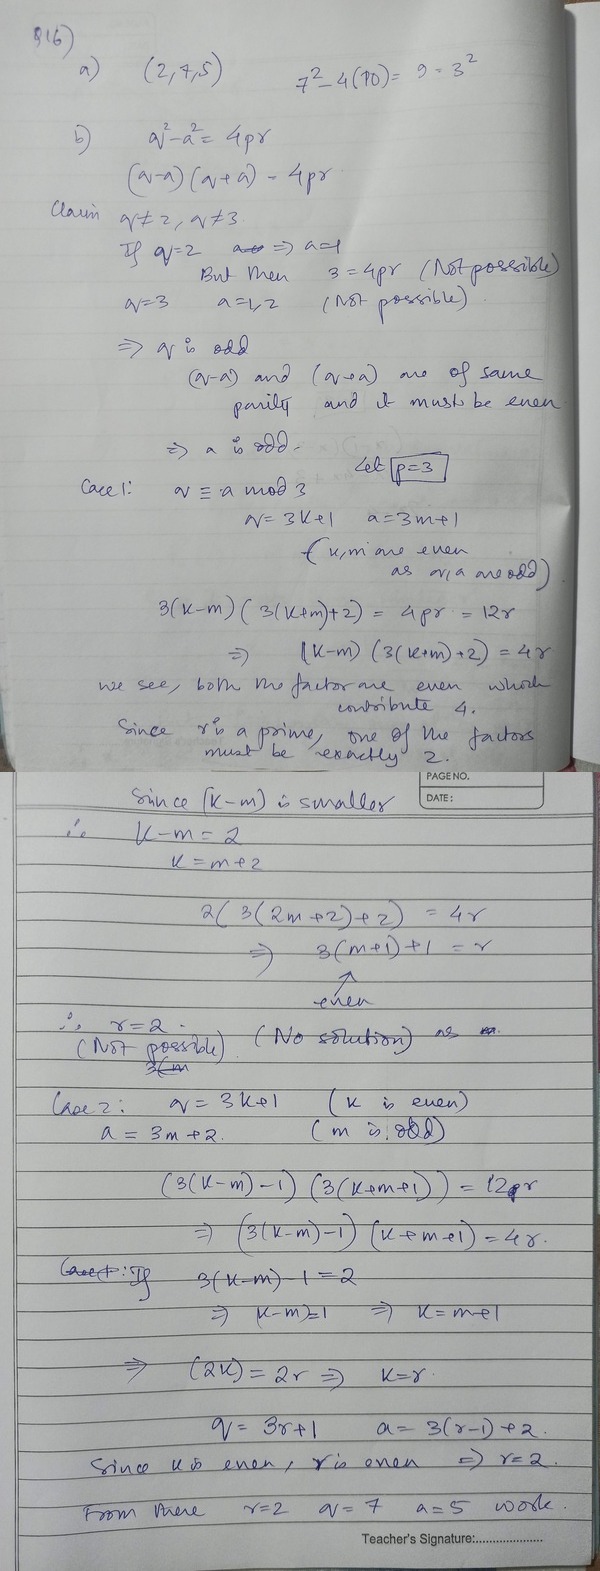 Q16)
a) (2,7,5) 7² - 4(10) = 9 = 3²
b) q² - a² = 4pr
(q-a) (q+a) = 4pr
Claim q≠2, q≠3.
If q=2 ⇒ a=1
But then 3=4pr (Not possible)
q=3 a=1,2 (Not possible)
⇒ q is odd
(q-a) and (q+a) are of same
parity and it must be even
⇒ a is odd.
Let p=3
Case 1: q ≡ a mod 3
q = 3k+1 a=3m+1
(k,m are even
as q,a are odd)
3(k-m) (3(k+m)+2) = 4pr = 12r
⇒ (k-m) (3(k+m)+2) = 4r
we see, both the factor are even which
contribute 4.
Since r is a prime, one of the factors
must be exactly 2.
PAGE NO.
DATE:
Since (k-m) is smaller
∴ k-m = 2
k = m+2
2(3(2m+2)+2) = 4r
⇒ 3(m+1)+1 = r
even
∴ r=2.
(Not possible) (No solution) as
3(m
Case 2: q = 3k+1 (k is even)
a = 3m+2. (m is odd)
(3(k-m)-1) (3(k+m+1)) = 12r
⇒ (3(k-m)-1) (k+m+1) = 4r.
If 3(k-m)-1 = 2
⇒ (k-m)=1 ⇒ k=m+1
⇒ (2k) = 2r ⇒ k=r.
q = 3r+1 a = 3(r-1)+2.
Since k is even, r is even ⇒ r=2.
From there r=2 q=7 a=5 work.
Teacher's Signature:....................